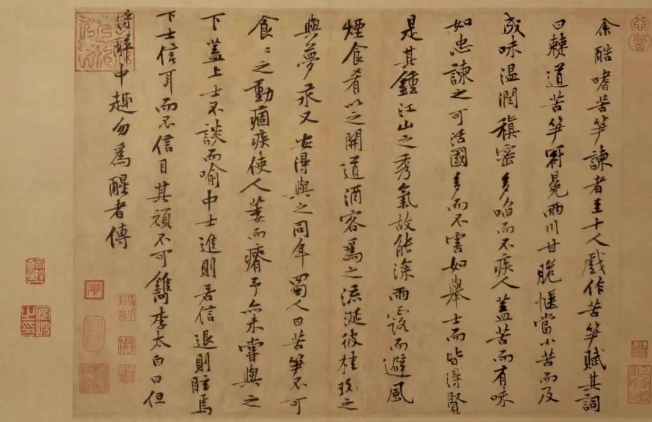 余酷嗜苦笋諫者至十人戲作苦笋賦其詞
曰僰道苦笋冠冕两川甘脆惬當小苦而反
成味温潤稹密多啗而不疾人盖苦而有味
如忠諫之可活國多而不害如舉士而皆得賢
是其鍾江山之秀氣故能深雨露而避風
煙食肴以之開道酒客為之流涎彼桂玫之
與夢永又安得與之同年蜀人曰苦笋不可
食〻之動痼疾使人萎而瘠予亦未嘗與之
下盖上士不談而喻中士進則若信退則眩焉
下士信耳而不信目其頑不可鐫李太白曰但
得醉中趣勿為醒者傳